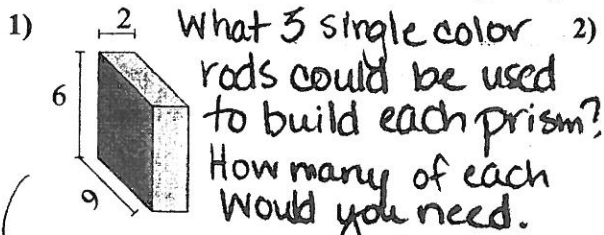 1)
2
What 3 single color
2)
rods could be used
6
to build each prism?
How many of each
9
Would you need.